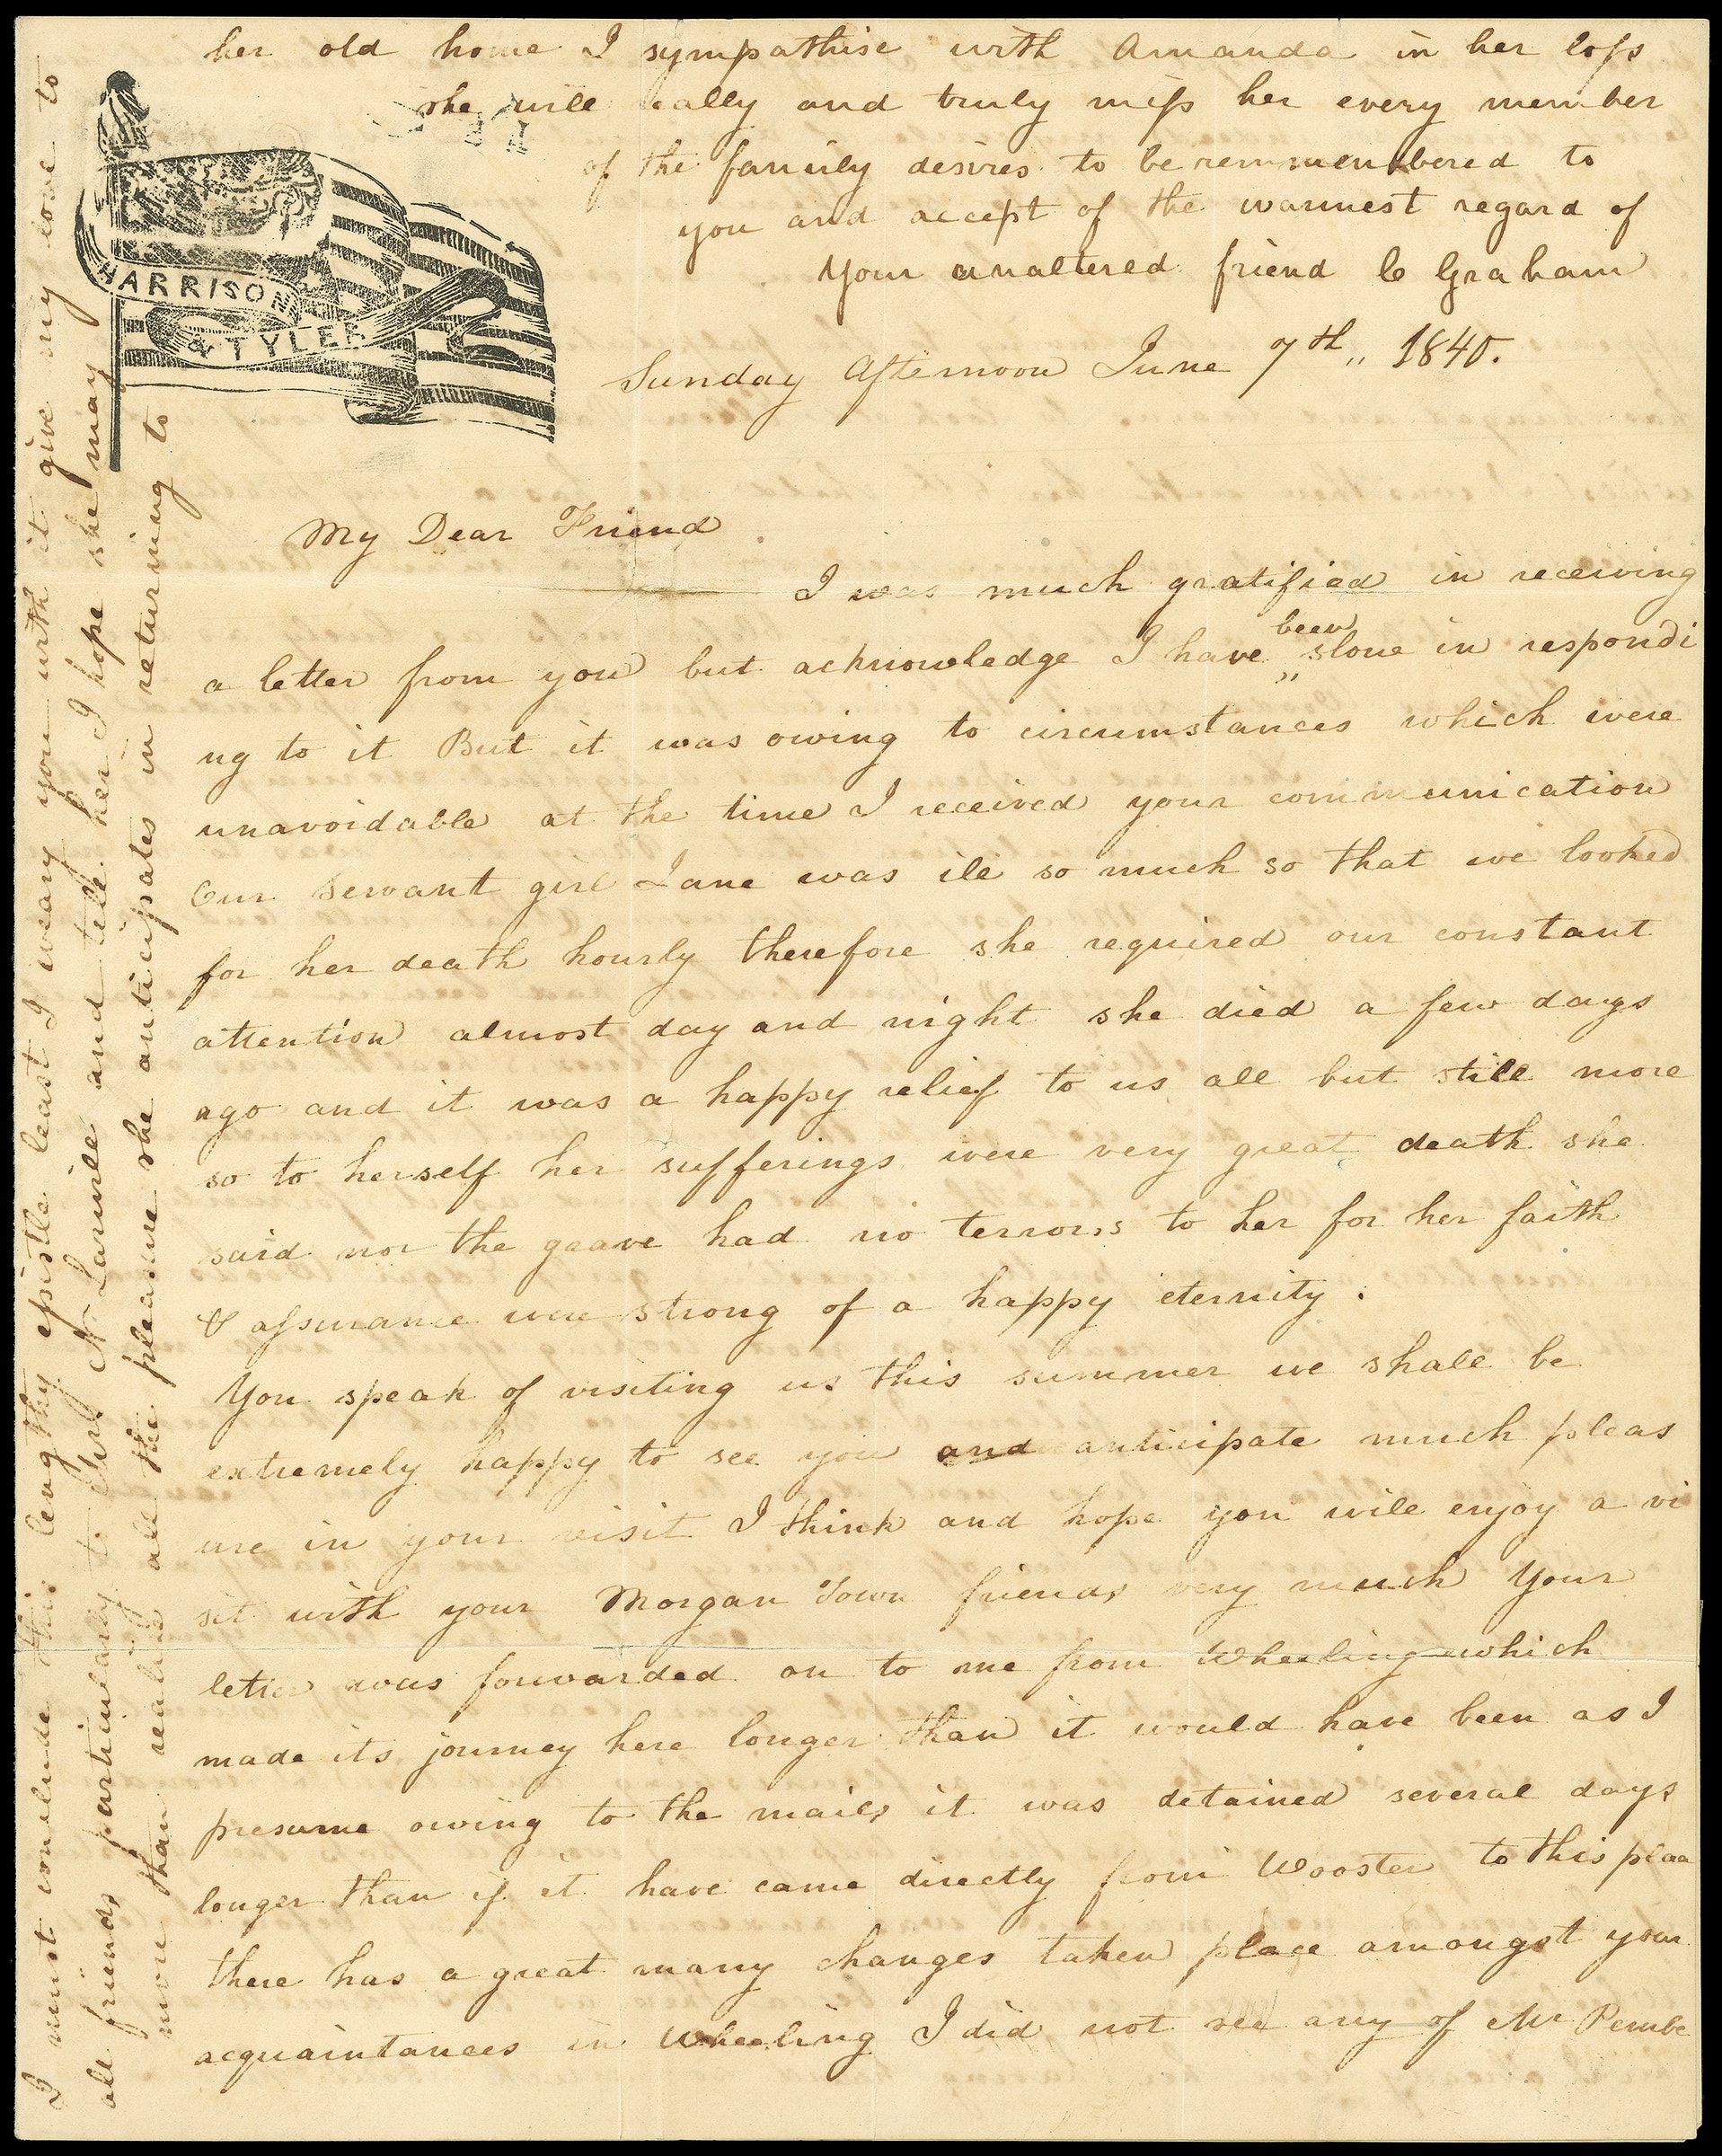 her old home I sympathise with Amanda in her loss
she will really and truly miss her every member
of the family desires to be remmembered to
you and accept of the warmest regard of
Your unaltered friend C Graham
HARRISON
& TYLER
Sunday Afternoon June 7th,, 1840.
My Dear Friend
I was much gratified in receiving
a letter from you but acknowledge I have been slone in respondi
ng to it But it was owing to circumstances which were
unavoidable at the time I received your communication
Our servant girl Jane was ill so much so that we looked
for her death hourly therefore she required our constant
attention almost day and night she died a few days
ago and it was a happy relief to us all but still more
so to herself her sufferings were very great death she
said nor the grave had no terrors to her for her faith
& assurance were strong of a happy eternity.
You speak of visiting us this summer we shall be
extremely happy to see you and anticipate much pleas
ure in your visit I think and hope you will enjoy a vi
sit with your Morgan Town friends very much Your
letter was forwarded on to me from Wheeling which
made its journey here longer than it would have been as I
presume owing to the mails it was detained several days
longer than if it have came directly from Wooster to this place
there has a great many changes taken place amongst your
acquaintances in Wheeling I did not see any of Mr Pembe
I must conclude this lengthy epistle least I weary you with it give my love to
all friends particularly to Mrs N and tell her I hope she may
more than realise all the pleasure she anticipates in returning to